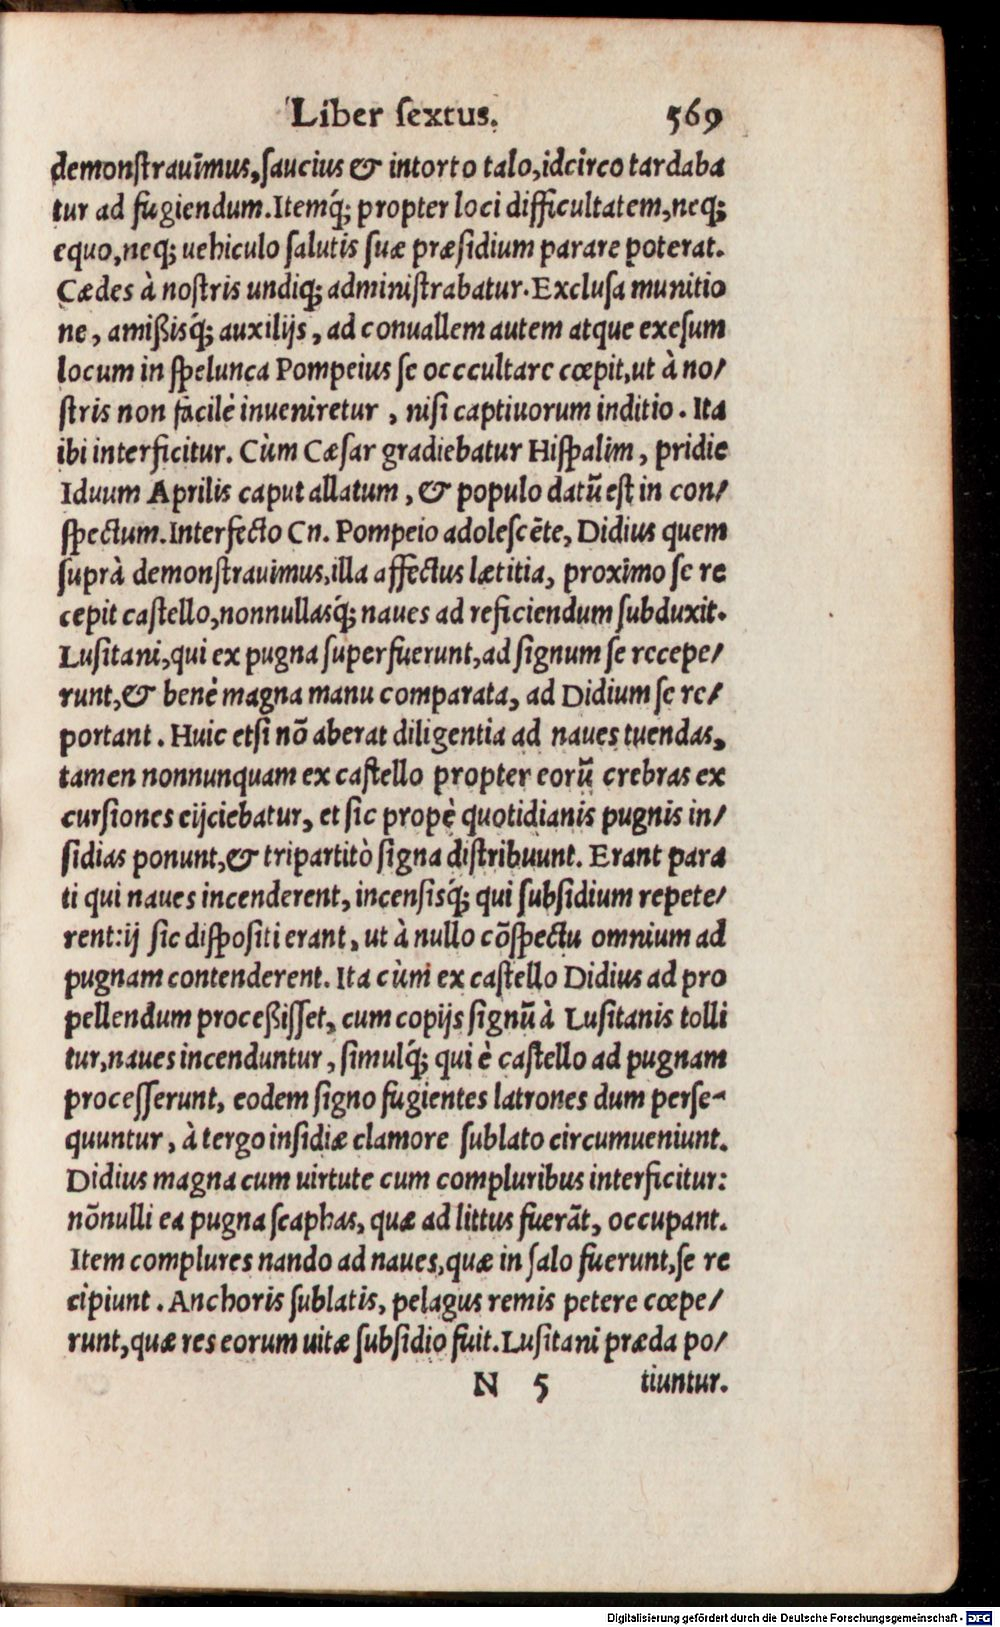 Liber ſextus. 569
demonſtrauimus, ſaucius & intorto talo, idcirco tardaba
tur ad fugiendum. Itemq́; propter loci difficultatem, neq;
equo, neq; uehiculo ſalutis ſuæ præſidium parare poterat.
Cædes à noſtris undiq; adminiſtrabatur. Excluſa munitio
ne, amißisq́; auxilijs, ad conuallem autem atque exeſum
locum in ſpelunca Pompeius ſe occcultare cœpit, ut à no/
ſtris non facilè inueniretur, niſi captiuorum inditio. Ita
ibi interficitur. Cùm Cæſar gradiebatur Hiſpalim, pridie
Iduum Aprilis caput allatum, & populo datū eſt in con/
ſpectum. Interfecto Cn. Pompeio adoleſcēte, Didius quem
ſuprà demonſtrauimus, illa affectus lætitia, proximo ſe re
cepit caſtello, nonnullasq́; naues ad reficiendum ſubduxit.
Luſitani, qui ex pugna ſuperfuerunt, ad ſignum ſe recepe/
runt, & benè magna manu comparata, ad Didium ſe re/
portant. Huic etſi nō aberat diligentia ad naues tuendas,
tamen nonnunquam ex caſtello propter eorū crebras ex
curſiones eijciebatur, et ſic propè quotidianis pugnis in/
ſidias ponunt, & tripartitò ſigna diſtribuunt. Erant para
ti qui naues incenderent, incenſisq́; qui ſubſidium repete/
rent: ij ſic diſpoſiti erant, ut à nullo cōſpectu omnium ad
pugnam contenderent. Ita cùm ex caſtello Didius ad pro
pellendum proceßiſſet, cum copijs ſignū à Luſitanis tolli
tur, naues incenduntur, ſimulq́; qui è caſtello ad pugnam
proceſſerunt, eodem ſigno fugientes latrones dum perſe-
quuntur, à tergo inſidiæ clamore ſublato circumueniunt.
Didius magna cum uirtute cum compluribus interficitur:
nōnulli ea pugna ſcaphas, quæ ad littus fuerāt, occupant.
Item complures nando ad naues, quæ in ſalo fuerunt, ſe re
cipiunt. Anchoris ſublatis, pelagus remis petere cœpe/
runt, quæ res eorum uitæ ſubſidio fuit. Luſitani præda po/
N 5 tiuntur.
Digitalisierung gefördert durch die Deutsche Forschungsgemeinschaft - DFG